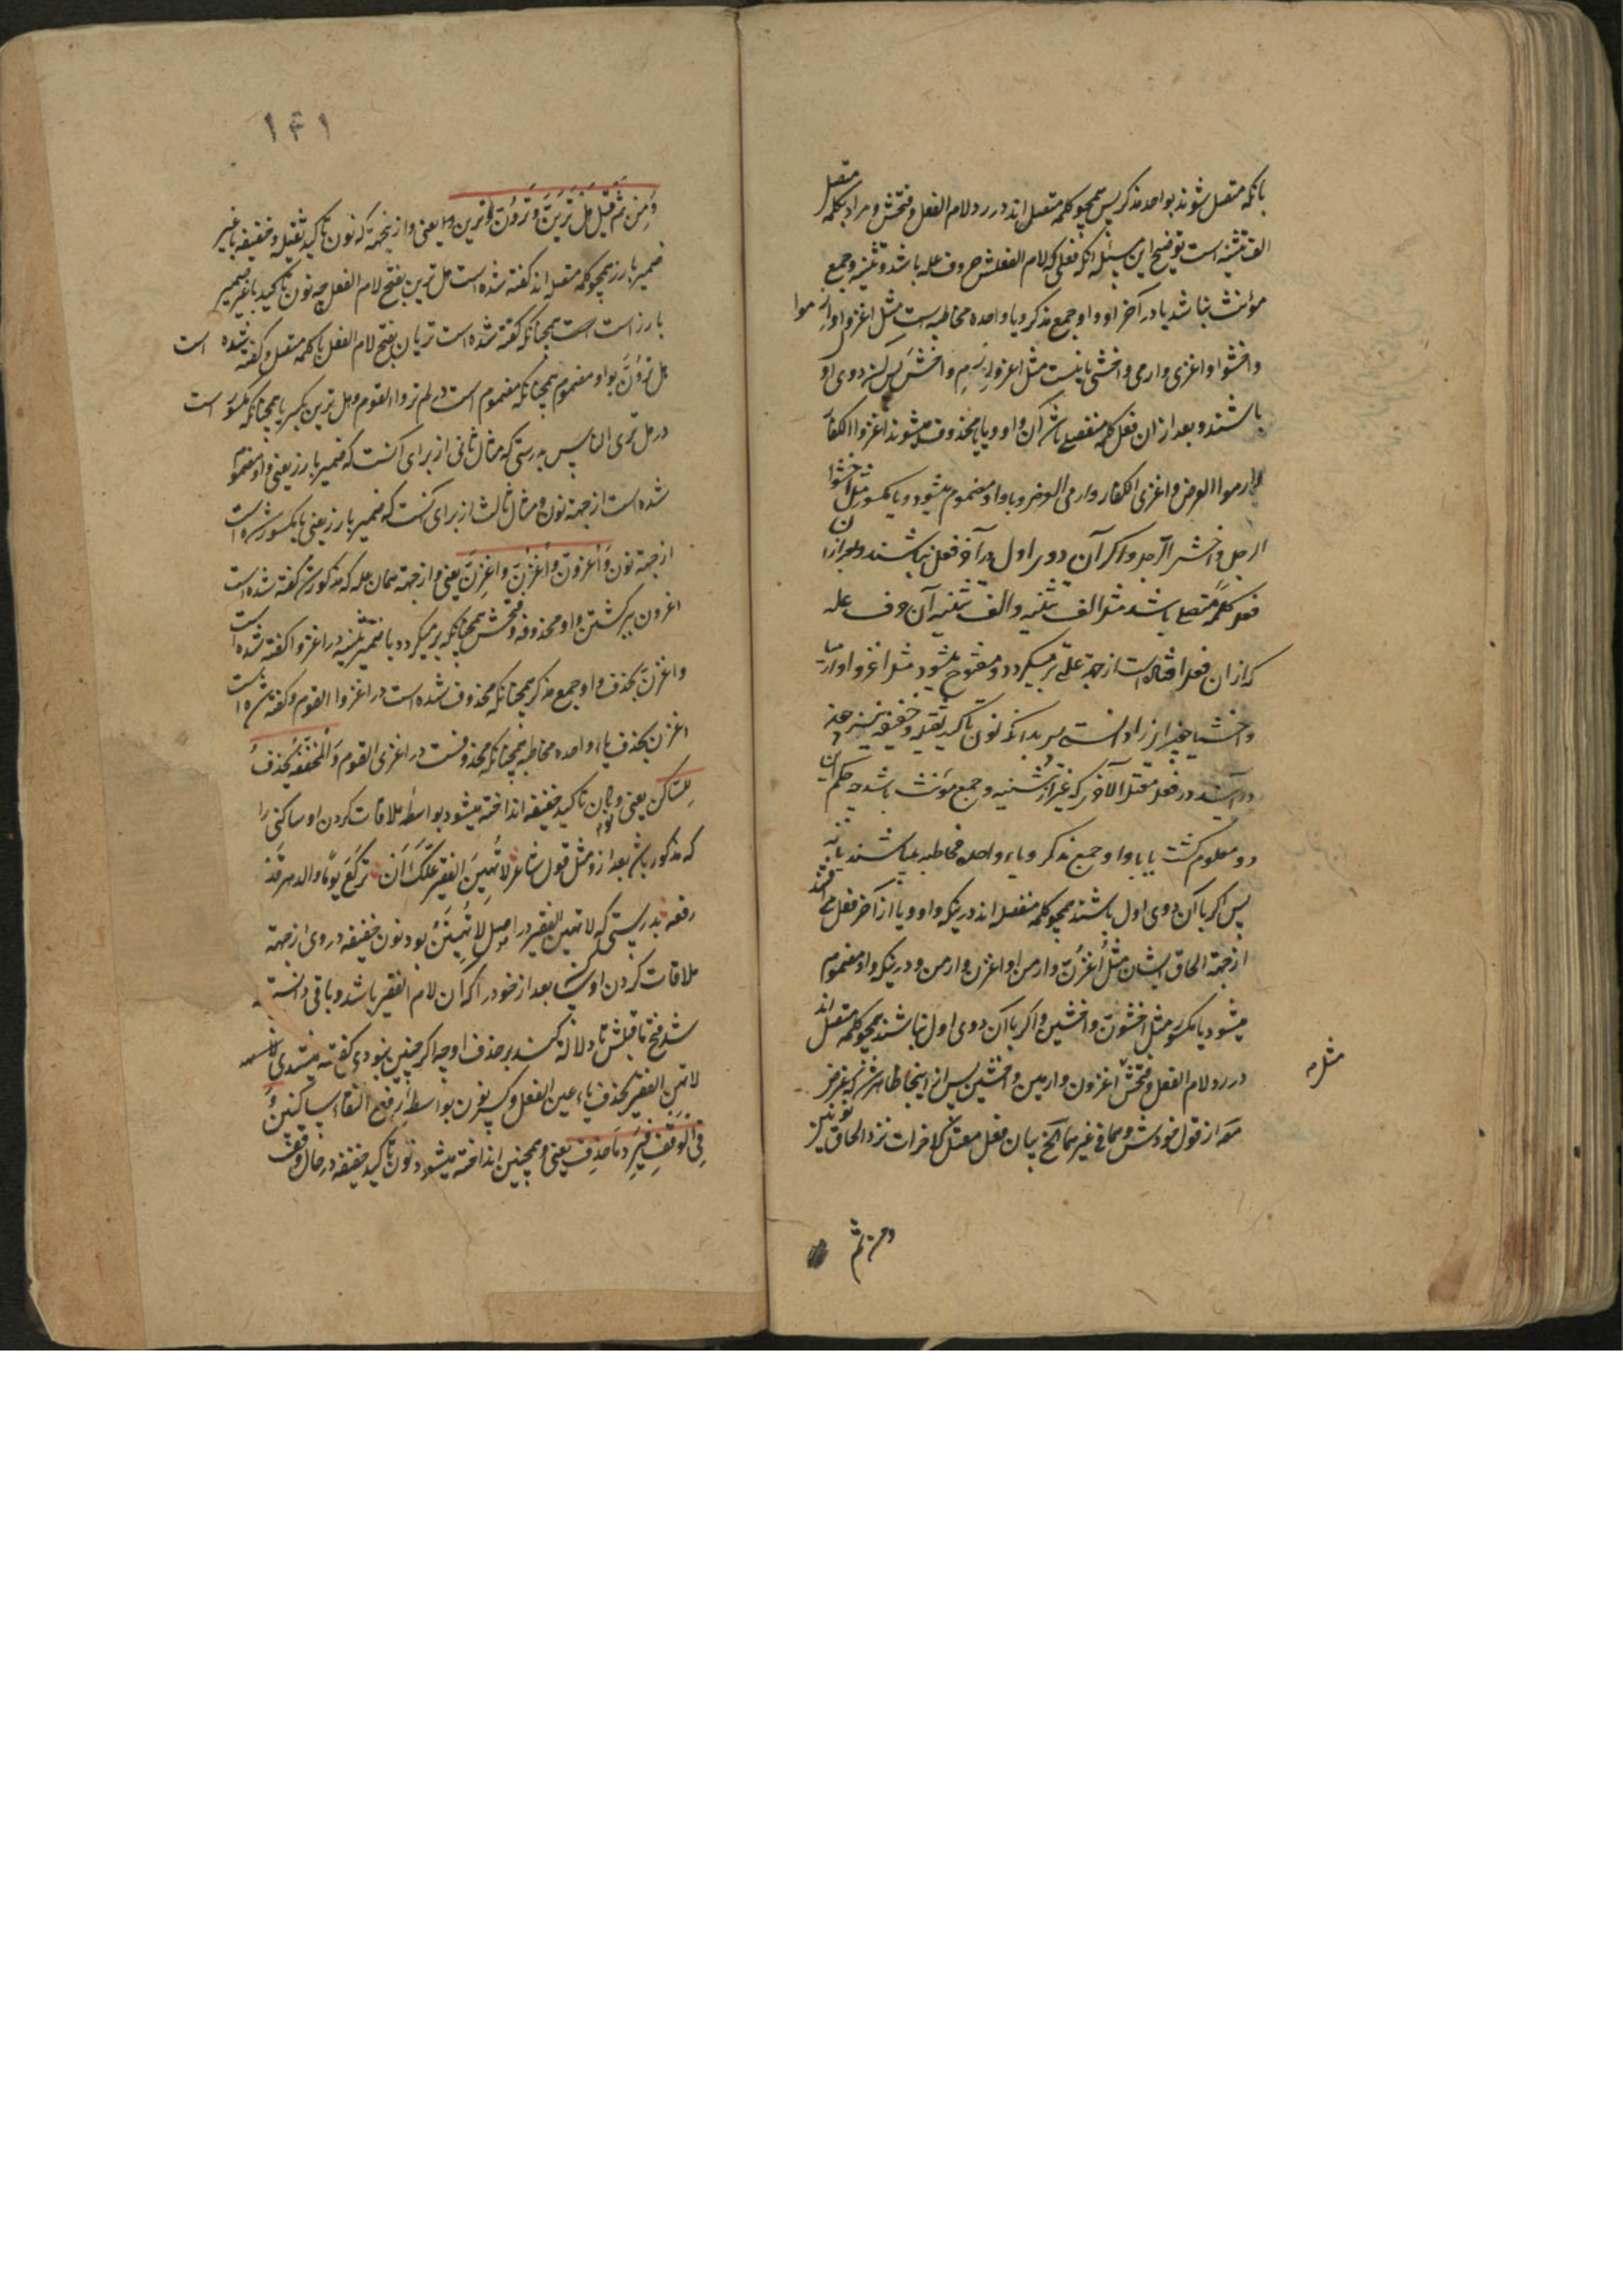 بانکه متصل شوند بواحد مذکر پس همچو کلمه متصل اند در رد لام الفعل و فتحش و مراد بکلمه متصل
الف تثنیه است توضیح این مسئله آنکه فعلی که لام الفعلش حروف عله باشد و تثنیه و جمع
مؤنث نباشد یا در آخر او واو جمع مذکر و یا واحده مخاطبه است مثل اغزوا و ارموا
و اخشوا و اغزی و ارمی و اخشی یا نیست مثل اغز و ارم و اخش پس اگر دوی او
باشند و بعد از ان فعل کلمه منفصل باشد آن واو و یا محذوف میشوند اغزوا الکفار
ارموا الغرض و اغزی الکفار و ارمی الغرض و یا واو مضموم میشود و یا مکسور مثل اخشوا
الرجل و اخشی الرجل و اگر آن دوی اول در آخر فعل نباشند و بعد از ان
فعل کلمه متصل باشد مثل الف تثنیه و الف تثنیه آن حرف عله
که از ان فعل افتاده است از جهة علتی بر میگردد و مفتوح میشود مثل اغزوا و ارمیا
و اخشیا چون این را دانستی پس بدانکه نون تاکید ثقیله و خفیفه نیز
در آیند در فعل معتل الآخر که غیر از تثنیه و جمع مؤنث باشد چه حکم این
دو معلوم گشت یا با واو جمع مذکر و یاء واحده مخاطبه میباشند یا نه
پس اگر با آن دوی اول باشند همچو کلمه منفصل اند در اینکه واو و یا از آخر فعل می افتد
از جهة الحاق ایشان مثل اغزن و ارمن و اغزن و ارمن و در اینکه واو مضموم
میشود یا مکسور مثل اخشون و اخشین و اگر با آن دوی اول نباشند همچو کلمه متصل اند
در رد لام الفعل و فتحش مثل اغزون و ارمین و اخشین پس از اینجا ظاهر شد که غرض
مص از قول خودش و هما فی غیرهما الخ بیان فعل معتل الاخر است نزد الحاق نونین
و من ثم
۱۴۱
وَمِن ثَمَّ قیل هل تَرَیَنَّ وَتَرَوُنَّ وَتَرَیِنَّ یعنی و از ینجهة که نون تاکید ثقیله و خفیفه با غیر
ضمیر بارز همچو کلمه متصل اند گفته شده است هل ترین بفتح لام الفعل چه نون تاکید با غیر ضمیر
بارز است همچنانکه گفته شده است تریان بفتح لام الفعل با کلمه متصل و گفته شده است
هل ترون بواو مضموم همچنانکه مضموم است در لم تروا القوم و هل ترین بکسر یا همچنانکه مکسور است
در هل تری الناس بدرستی که مثال ثانی از برای آنست که ضمیر بارز یعنی واو مضموم
شده است از جهة نون و مثال ثالث از برای آنست که ضمیر بارز یعنی یا مکسور شده است
از جهة نون وَاُغزُوَنَّ وَاُغزُنَّ وَاُغزِنَّ یعنی و از جهة همان عله که مذکور شد گفته شده است
اغزون ببر گشتن واو محذوفه و فتحش همچنانکه بر میگردد با ضمیر تثنیه در اغزوا گفته شده است
و اغزن بحذف واو جمع مذکر همچنانکه محذوف شده است در اغزوا القوم و گفته شده است
اغزن بحذف یاء واحده مخاطبه همچنانکه محذوفست در اغزی القوم وَالمُخَفَّفَةُ تُحذَفُ
لِلسّاکِنِ یعنی و نون تاکید خفیفه انداخته میشود بواسطه ملاقات کردن او ساکنی را
که مذکور باشد بعد از و مثل قول شاعر لاتُهینَ الفقیرَ عَلَّکَ اَن تَرکَعَ یَومًا والدهر قَد
رفعه بدرستی که لا تهین الفقیر در اصل لا تُهینَن بود نون خفیفه در وی از جهة
ملاقات کردن او ساکن بعد از خود را که ان لام الفقیر باشد و باقی دانسته
شد فتح ما قبلش تا دلالة کند بر حذف او چه اگر چنین نبودی گفته میشدی
لا تهن الفقیر بحذف یاء عین الفعل و کسر نون بواسطه رفع التقاء ساکنین وَ
فِی الوَقفِ فَیُرَدُّ مَا حُذِفَ یعنی و همچنین انداخته میشود نون تاکید خفیفه در حال وقف